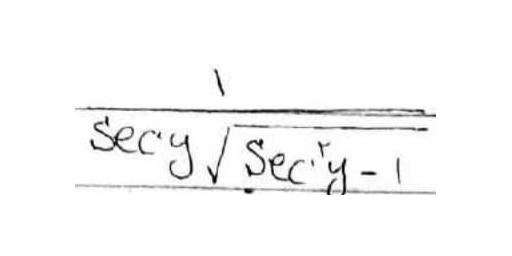 1
sec y √(sec²y - 1)